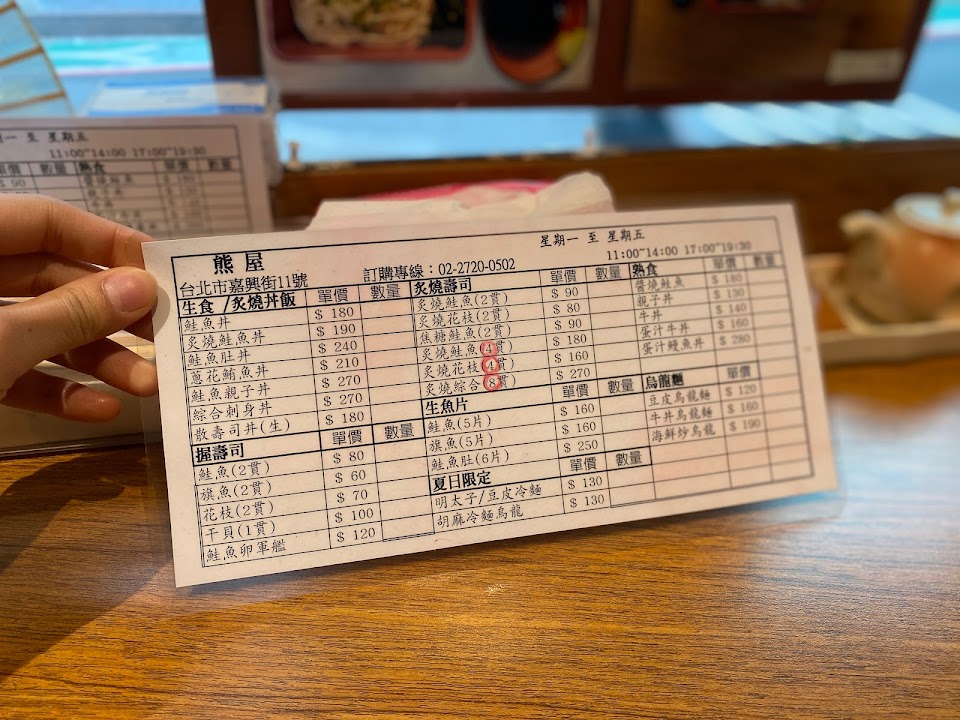 一 至 星期五
11:00~14:00 17:00~19:30
單價 數量 熟食 單價 數量
$ 90
熊 屋
星期一 至 星期五
台北市嘉興街11號
訂購專線：02-2720-0502
11:00~14:00 17:00~19:30
生食/炙燒丼飯 單價 數量
鮭魚丼 $ 180
炙燒鮭魚丼 $ 190
鮭魚肚丼 $ 240
蔥花鮪魚丼 $ 210
鮭魚親子丼 $ 270
綜合刺身丼 $ 270
散壽司丼(生) $ 180
握壽司 單價 數量
鮭魚(2貫) $ 80
旗魚(2貫) $ 60
花枝(2貫) $ 70
干貝(1貫) $ 100
鮭魚卵軍艦 $ 120
炙燒壽司 單價 數量
炙燒鮭魚(2貫) $ 90
炙燒花枝(2貫) $ 80
焦糖鮭魚(2貫) $ 90
炙燒鮭魚(4貫) $ 180
炙燒花枝(4貫) $ 160
炙燒綜合(8貫) $ 270
生魚片 單價 數量
鮭魚(5片) $ 160
旗魚(5片) $ 160
鮭魚肚(6片) $ 250
夏日限定 單價 數量
明太子/豆皮冷麵 $ 130
胡麻冷麵烏龍 $ 130
熟食 單價 數量
醬燒鮭魚 $ 180
親子丼 $ 130
牛丼 $ 140
蛋汁牛丼 $ 160
蛋汁鰻魚丼 $ 280
烏龍麵 單價
豆皮烏龍麵 $ 120
牛丼烏龍麵 $ 160
海鮮炒烏龍 $ 190